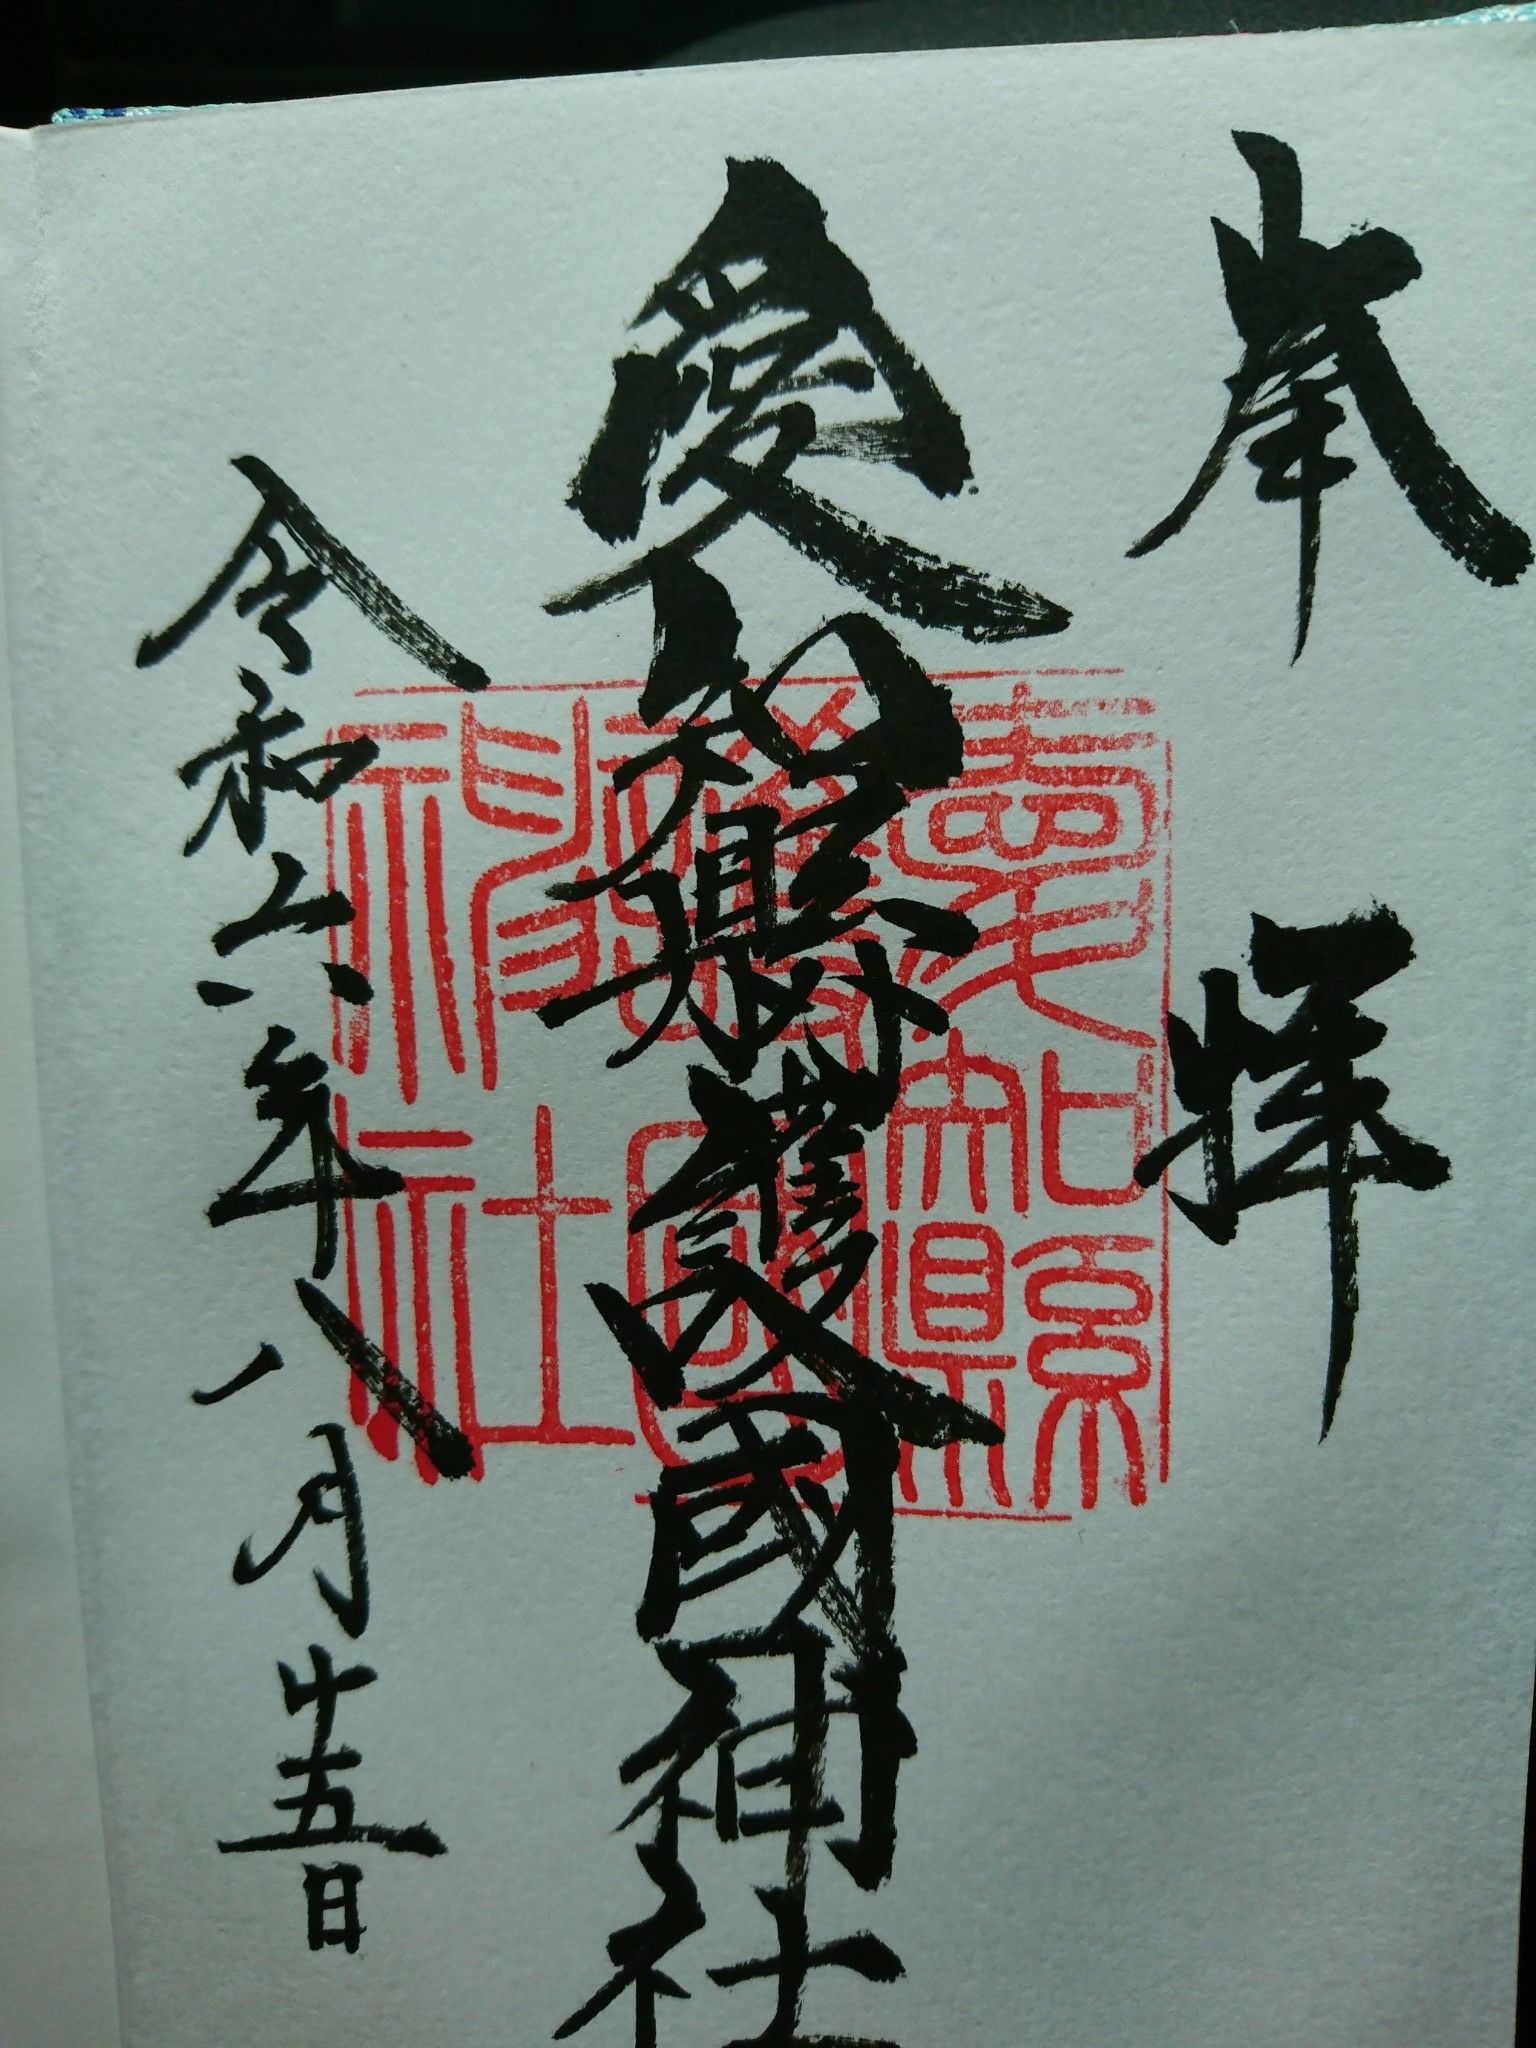 奉拝
愛知縣護國神社
令和六年八月十五日
愛知縣
護國
神社